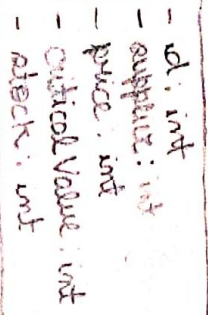 - id : int
- supplier : int
- price : int
- CriticalValue : int
- stock : int